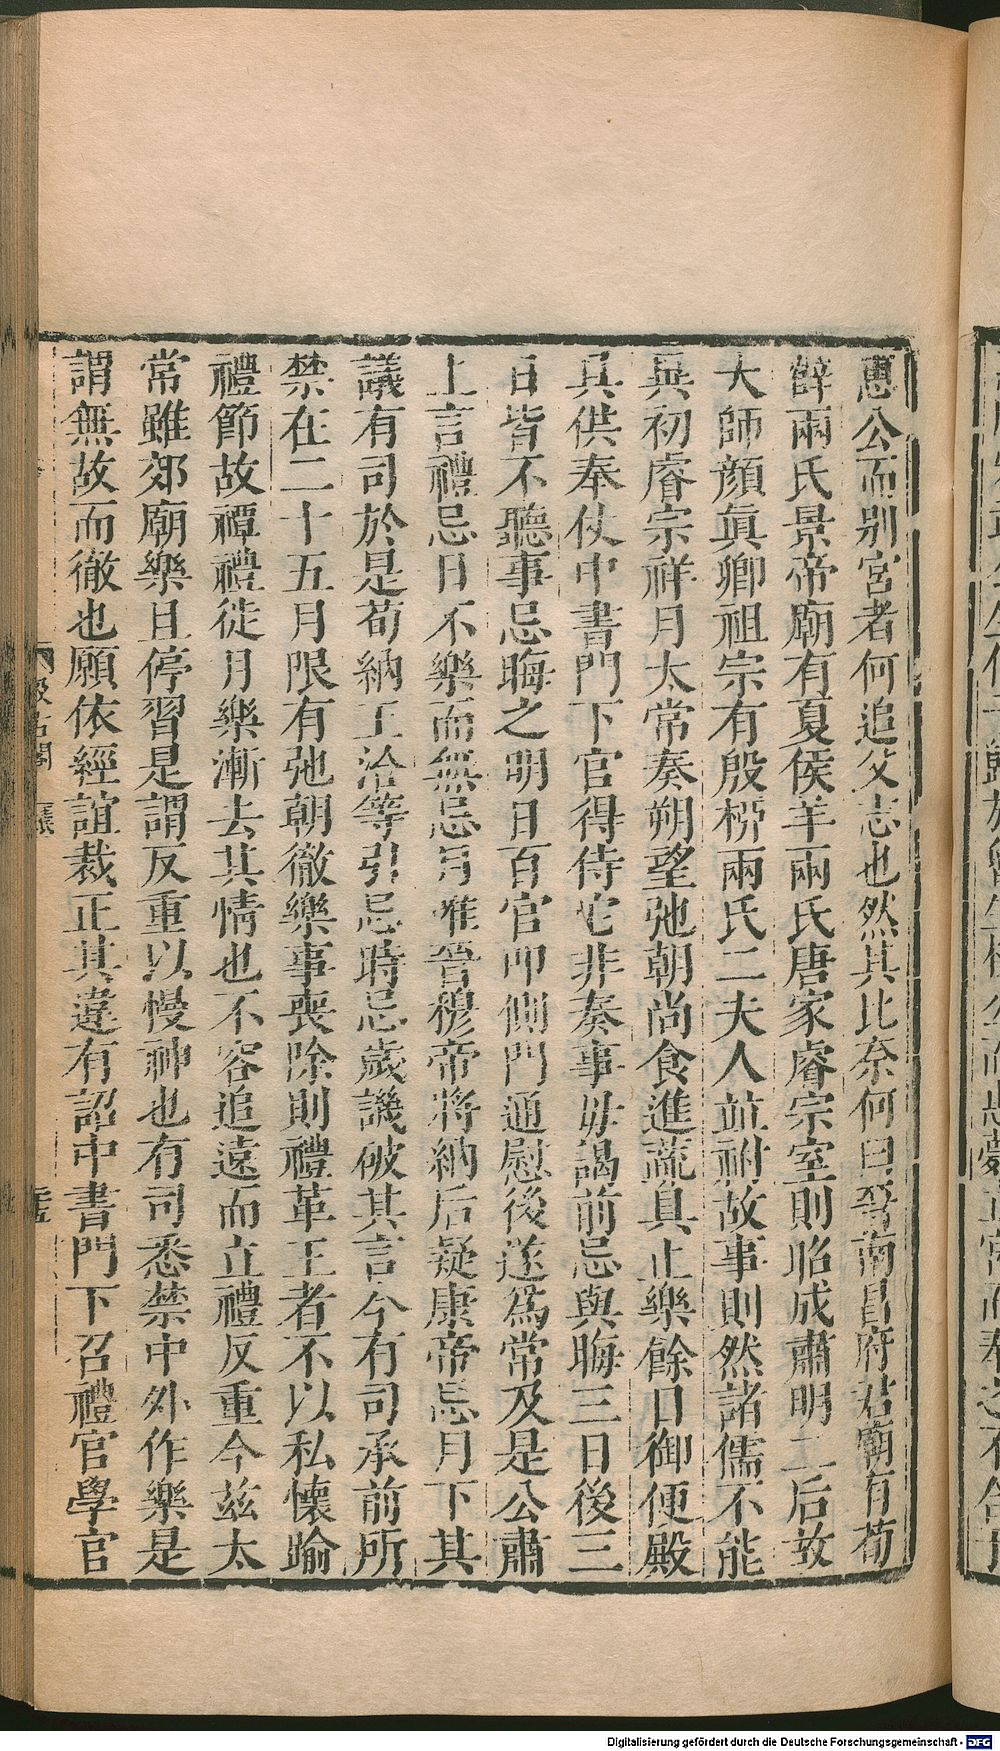 惠公而別宮者何追父志也然其比奈何曰晉南昌府君廟有荀
薛兩氏景帝廟有夏侯羊兩氏唐家睿宗室則昭成肅明二后故
大師顏眞卿祖宗有殷桺兩氏二夫人竝祔故事則然諸儒不能
異初睿宗祥月太常奏朔望弛朝尚食進蔬具止樂餘日御便殿
具供奉仗中書門下官得侍它非奏事毋謁前忌與晦三日後三
日皆不聽事忌晦之明日百官叩側門通慰後遂爲常及是公肅
上言禮忌日不樂而無忌月唯晉穆帝將納后疑康帝忌月下其
議有司於是荀納王洽等引忌時忌歲譏破其言今有司承前所
禁在二十五月限有弛朝徹樂事喪除則禮革王者不以私懷踰
禮節故禫禮徒月樂漸去其情也不容追遠而立禮反重今茲太
常雖郊廟樂且停習是謂反重以慢神也有司悉禁中外作樂是
謂無故而徹也願依經誼裁正其違有詔中書門下召禮官學官
汲古閣
Digitalisierung gefördert durch die Deutsche Forschungsgemeinschaft - DFG